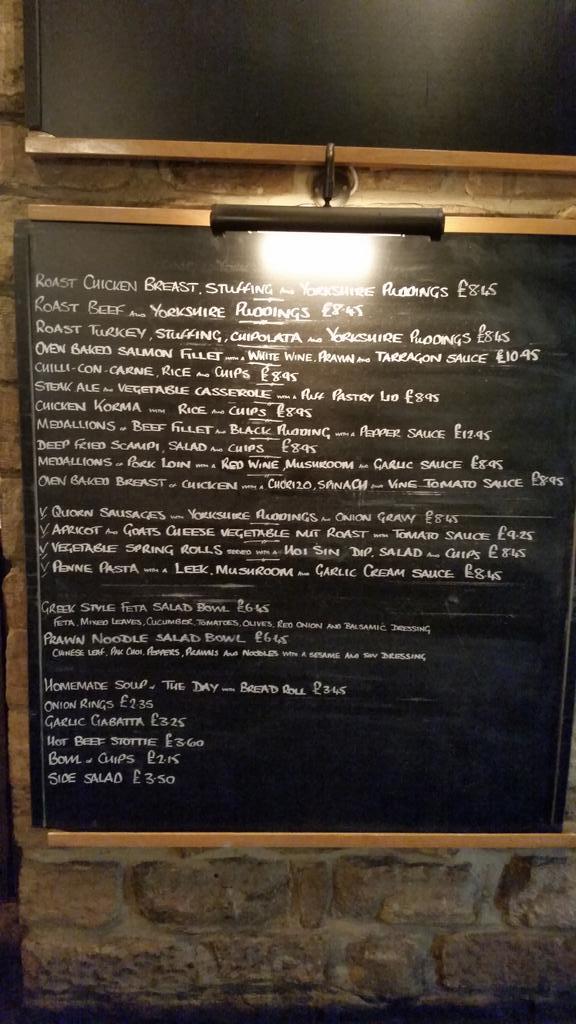 ROAST CHICKEN BREAST, STUFFING AND YORKSHIRE PUDDINGS £8.45
ROAST BEEF AND YORKSHIRE PUDDINGS £8.45
ROAST TURKEY, STUFFING, CHIPOLATA AND YORKSHIRE PUDDINGS £8.45
OVEN BAKED SALMON FILLET WITH A WHITE WINE, PRAWN AND TARRAGON SAUCE £10.95
CHILLI-CON-CARNE, RICE AND CHIPS £8.95
STEAK ALE AND VEGETABLE CASSEROLE WITH A PUFF PASTRY LID £8.95
CHICKEN KORMA WITH RICE AND CHIPS £8.95
MEDALLIONS OF BEEF FILLET AND BLACK PUDDING WITH A PEPPER SAUCE £12.95
DEEP FRIED SCAMPI, SALAD AND CHIPS £8.95
MEDALLIONS OF PORK LOIN WITH A RED WINE, MUSHROOM AND GARLIC SAUCE £8.95
OVEN BAKED BREAST OF CHICKEN WITH A CHORIZO, SPINACH AND VINE TOMATO SAUCE £8.95
V QUORN SAUSAGES WITH YORKSHIRE PUDDINGS AND ONION GRAVY £8.45
V APRICOT AND GOATS CHEESE VEGETABLE NUT ROAST WITH TOMATO SAUCE £9.25
V VEGETABLE SPRING ROLLS SERVED WITH A HOI SIN DIP, SALAD AND CHIPS £8.45
V PENNE PASTA WITH A LEEK, MUSHROOM AND GARLIC CREAM SAUCE £8.45
GREEK STYLE FETA SALAD BOWL £6.45
FETA, MIXED LEAVES, CUCUMBER, TOMATOES, OLIVES, RED ONION AND BALSAMIC DRESSING
PRAWN NOODLE SALAD BOWL £6.45
CHINESE LEAF, PAK CHOI, PEPPERS, PRAWNS AND NOODLES WITH A SESAME AND SOY DRESSING
HOMEMADE SOUP OF THE DAY WITH BREAD ROLL £3.45
ONION RINGS £2.35
GARLIC CIABATTA £3.25
HOT BEEF STOTTIE £3.60
BOWL OF CHIPS £2.15
SIDE SALAD £3.50